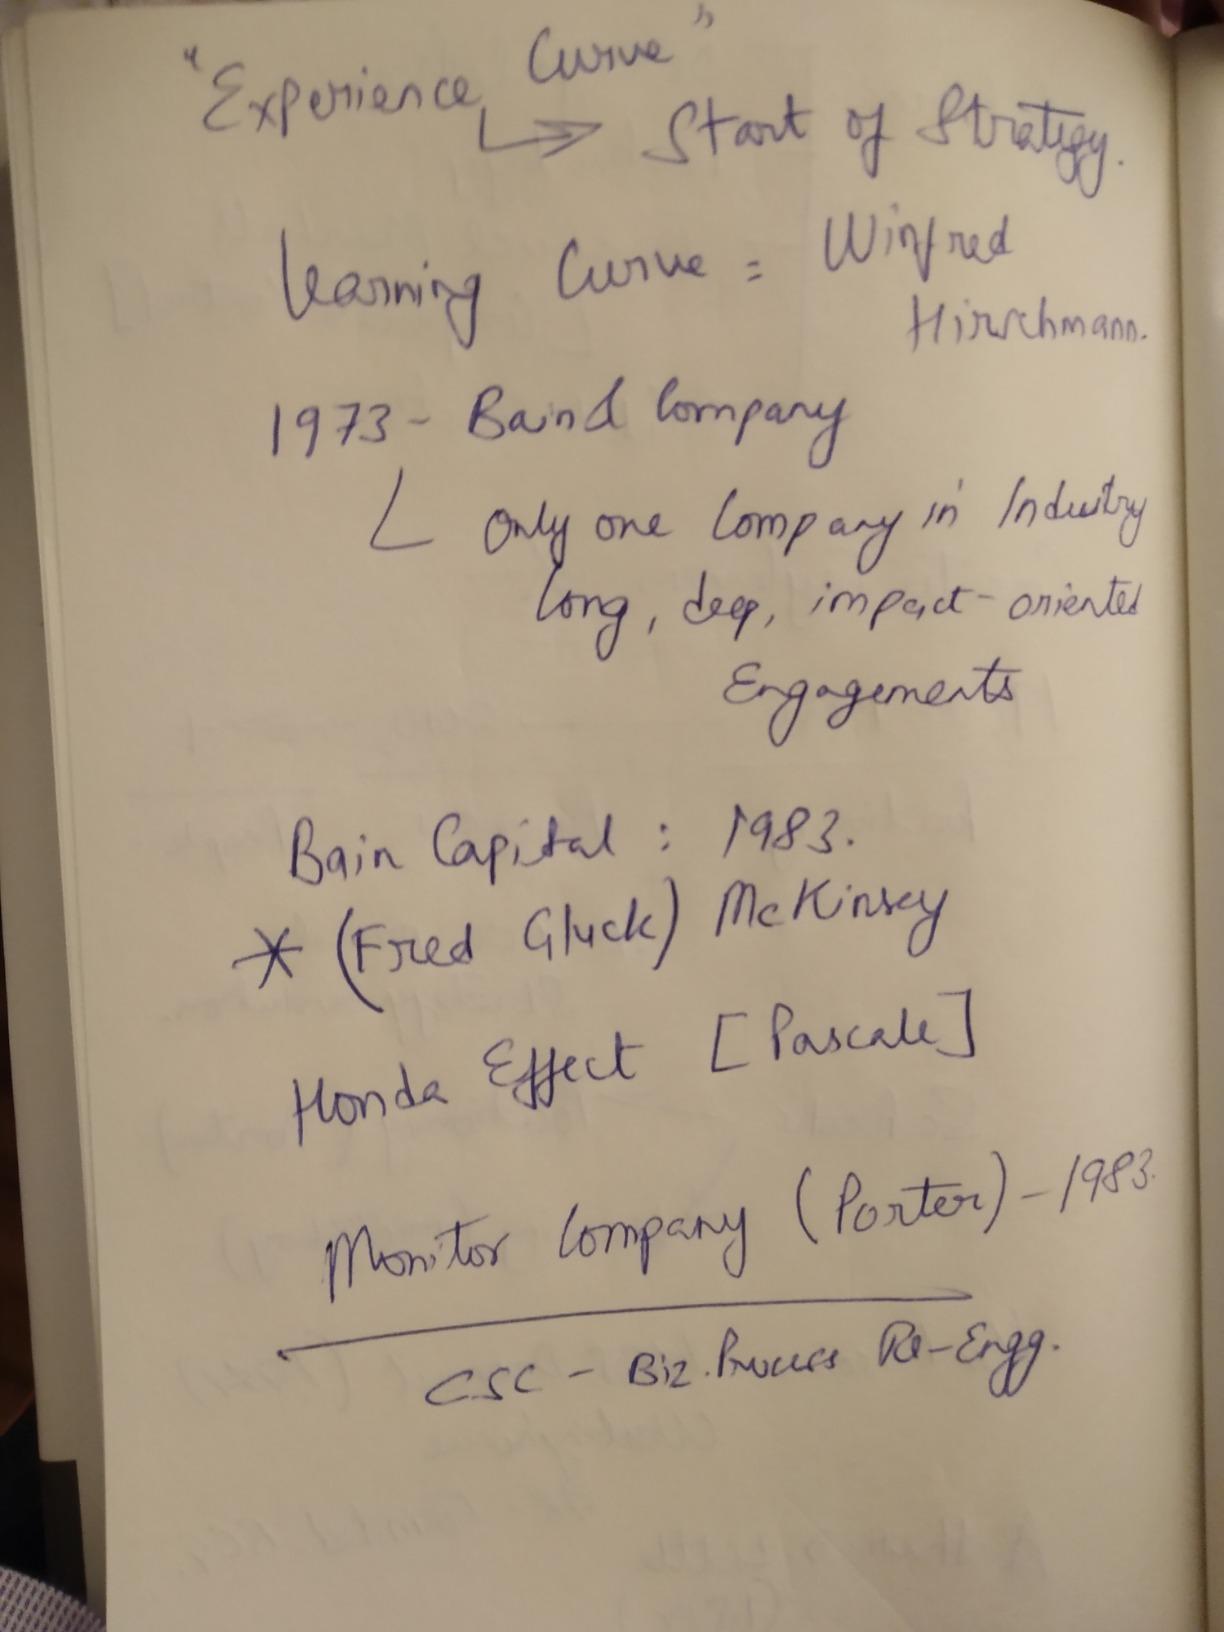 "Experience Curve"
↳ Start of Strategy.
Learning Curve = Winfred
Hirschmann.
1973 - Bain & Company
Only one Company in Industry
Long, deep, impact-oriented
Engagements
Bain Capital : 1983.
* (Fred Gluck) McKinsey
Honda Effect [Pascale]
Monitor Company (Porter) - 1983.
CSC - Biz. Process Re-Engg.